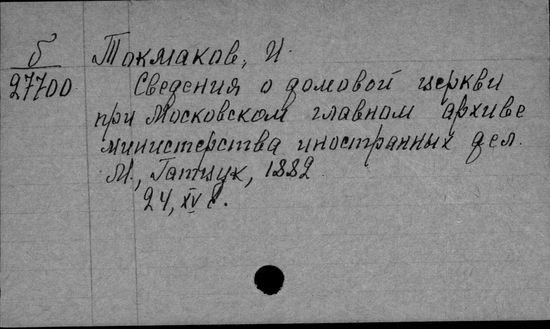 б Токмаков, И.
27700 Сведения о домовой церкви
при Московском главном архиве
министерства иностранных дел.
М., Гатцук, 1882
24, XV с.